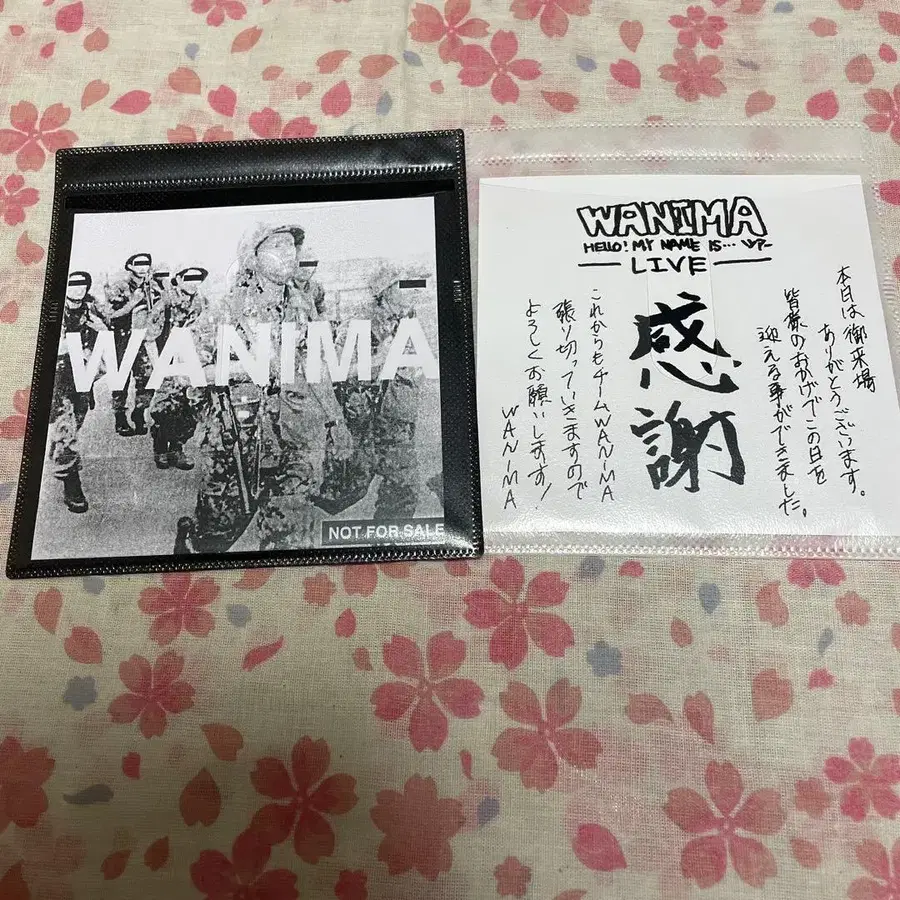 WANIMA
NOT FOR SALE
WANIMA
HELLO! MY NAME IS...
LIVE
本日は御来場
ありがとうございます。
皆様のおかげでこの日を
迎える事ができました。
感謝
これからもチームWANIMA
張り切っていきますので
よろしくお願いします!
WANIMA